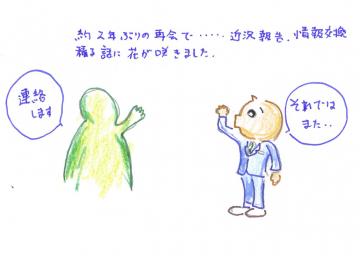 約2年ぶりの再会で‥‥‥近況報告、情報交換
積る話に花が咲きました。
連絡
します
それでは
また‥